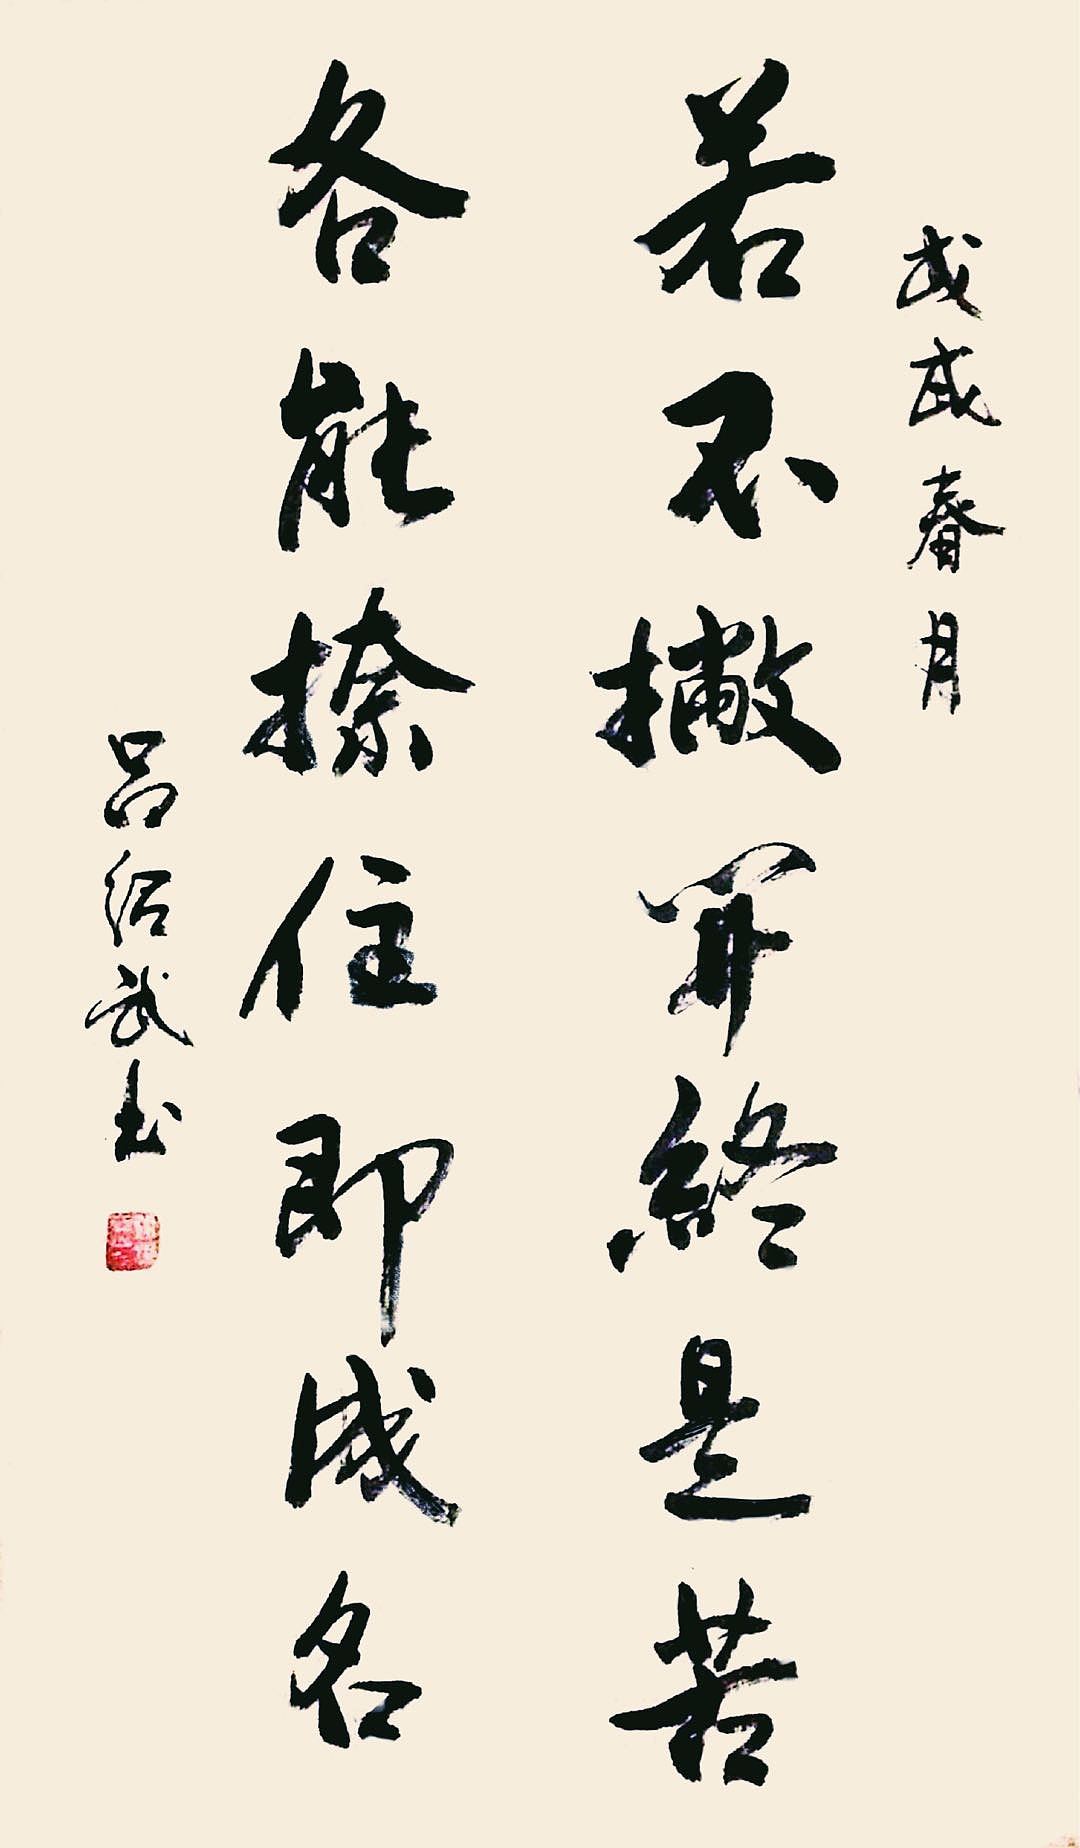 戊戌春月
若不撇開終是苦
各能捺住即成名
吕绍武书